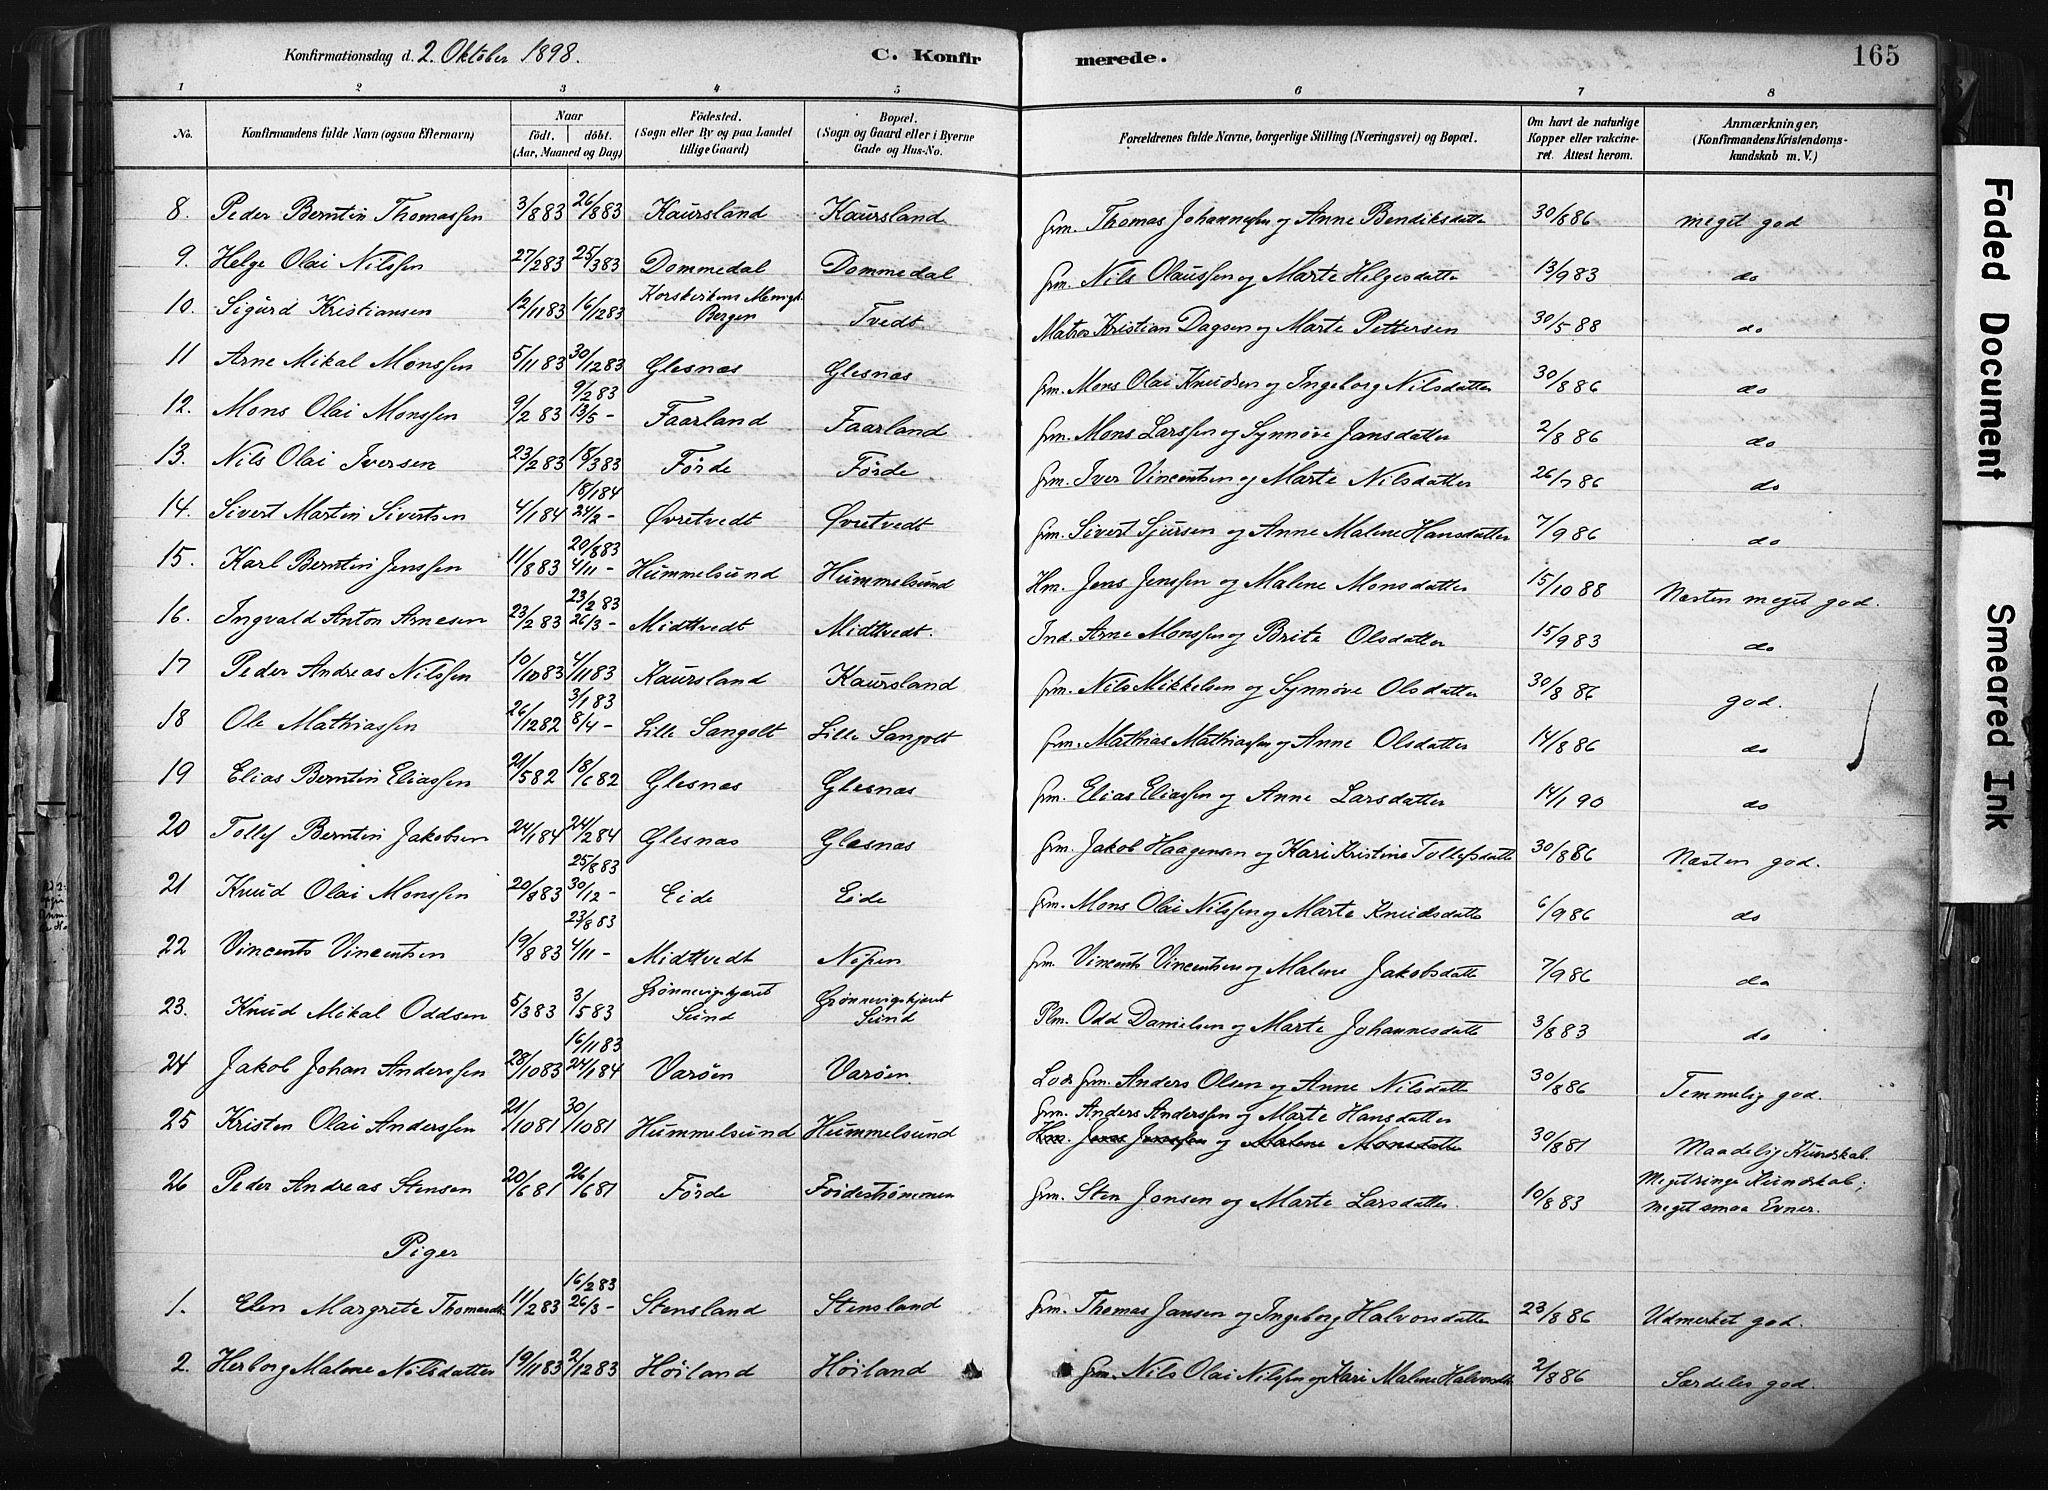 Konfirmationsdag d. 2. Oktober 1898.
C. Konfirmerede.
165
1 2 3 4 5 6 7 8
No.
Konfirmandens fulde Navn (ogsaa Efternavn)
Naar
födt. döbt.
(Aar, Maaned og Dag)
Födested.
(Sogn eller By og paa Landet
tillige Gaard)
Bopæl.
(Sogn og Gaard eller i Byerne
Gade og Hus-No.
Forældrenes fulde Navne, borgerlige Stilling (Næringsvei) og Bopæl.
Om havt de naturlige
Kopper eller vakcine-
ret. Attest herom.
Anmærkninger,
(Konfirmandens Kristendoms-
kundskab m. V.)
8. Peder Berntin Thomassen 3/8 83 26/8 83 Kaursland Kaursland Grm. Thomas Johannessen og Anne Bendiksdatter 30/8 86 meget god
9. Helge Olai Nilssen 27/2 83 25/3 83 Dommedal Dommedal Grm. Nils Olaussen og Marte Helgesdatter 13/9 83 do
10. Sigurd Kristiansen 12/11 83 16/12 83 Korskirkens Menigh. Bergen Tvedt Matros Kristian Dagsen og Marte Pettersen 30/5 88 do
11 Arne Mikal Monssen 5/11 83 30/12 83 Glesnæs Glesnæs Grm. Mons Olai Knudsen og Ingeborg Nilsdatter 30/8 86 do
12. Mons Olai Monssen 9/2 83 9/2 83 13/5 - Faarland Faarland Grm. Mons Larssen og Synnøve Jansdatter 2/8 86 do
13. Nils Olai Iversen 23/2 83 18/3 83 Førde Førde Grm. Iver Vincentsen og Marte Nilsdatter 26/7 86 do
14. Sivert Martin Sivertsen 4/1 84 18/1 84 24/2 - Øvretvedt Øvretvedt Grm. Sivert Sjursen og Anne Malene Hansdatter 7/9 86 do
15. Karl Berntin Jenssen 11/8 83 20/8 83 4/11 - Hummelsund Hummelsund Hm. Jens Jenssen og Malene Monsdatter 15/10 88 Næsten meget god.
16. Ingvald Anton Arnesen 23/2 83 23/2 83 26/3 - Midttvedt Midttvedt. Ind. Arne Monssen og Brite Olsdatter 15/9 83 do
17 Peder Andreas Nilssen 10/10 83 4/11 83 Kaursland Kaursland Grm. Nils Mikkelsen og Synnøve Olsdatter 30/8 86 god.
18 Ole Mathiassen 26/12 82 3/1 83 8/4 - Lille Sangolt Lille Sangolt Grm. Mathias Mathiassen og Anne Olsdatter 14/8 86 do
19 Elias Berntin Eliassen 21/5 82 18/6 82 Glesnæs Glesnæs Grm. Elias Eliassen og Anne Larsdatter 14/1 90 do
20 Tollef Berntin Jakobsen 24/1 84 24/2 84 Glesnæs Glesnæs Grm. Jakob Haagensen og Kari Kristine Tollefsdatter 30/8 86 Næsten god.
21 Knud Olai Monssen 20/8 83 25/8 83 30/12 - Eide Eide Grm. Mons Olai Nilssen og Marte Knudsdatter 6/9 86 do
22 Vincents Vincentsen 19/8 83 23/8 83 4/11 - Midttvedt Nipen Grm. Vincents Vincentsen og Malene Jakobsdatter 7/9 86 do
23. Knud Mikal Oddsen 5/3 83 3/5 83 Grønnevigskjæret Sund Grønnevigskjæret Sund Plm. Odd Danielsen og Marte Johannesdatter 3/8 83 do
24 Jakob Johan Anderssen 28/10 83 16/11 83 24/1 84 Varöen Varöen. Lods Grm. Anders Olsen og Anne Nilsdatter 30/8 86 Temmelig god.
25 Kristen Olai Anderssen 21/10 81 30/10 81 Hummelsund Hummelsund Grm. Anders Anderssen og Marte Hansdatter
Hm. Jens Jenssen og Malene Monsdatter 30/8 81 Maadelig Kundskab.
26 Peder Andreas Stensen 20/6 81 26/6 81 Förde Fördestrømmen Grm. Sten Jonsen og Marte Larsdatter. 10/8 83 Meget ringe Kundskab; meget smaa Evner.
Piger
1. Elen Margrete Thomasdtr 11/2 83 16/2 83 26/3 - Stensland Stensland Grm. Thomas Jansen og Ingeborg Halvorsdatter 23/8 86 Udmerket god.
2. Herborg Malene Nilsdatter 19/11 83 2/12 83 Höiland Höiland Grm. Nils Olai Nilssen og Kari Malene Halvorsdtr 2/8 86 Særdeles god.
Faded Document
Smeared Ink